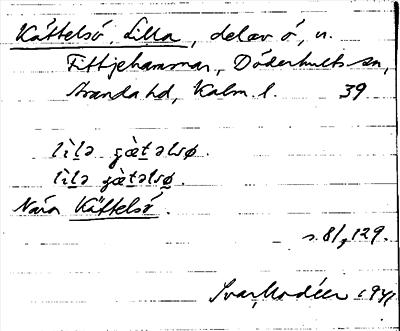 Kättelsö, Lilla, del av ö, n.
Fittjehammar, Döderhults sn,
Handbörds hd, Kalm. l. 39
lìlə gæ̀təlsø.
lìlə gæ̀təlsø.
Nära Kättelsö.
s. 81, 129.
Ivar Modéer 1941